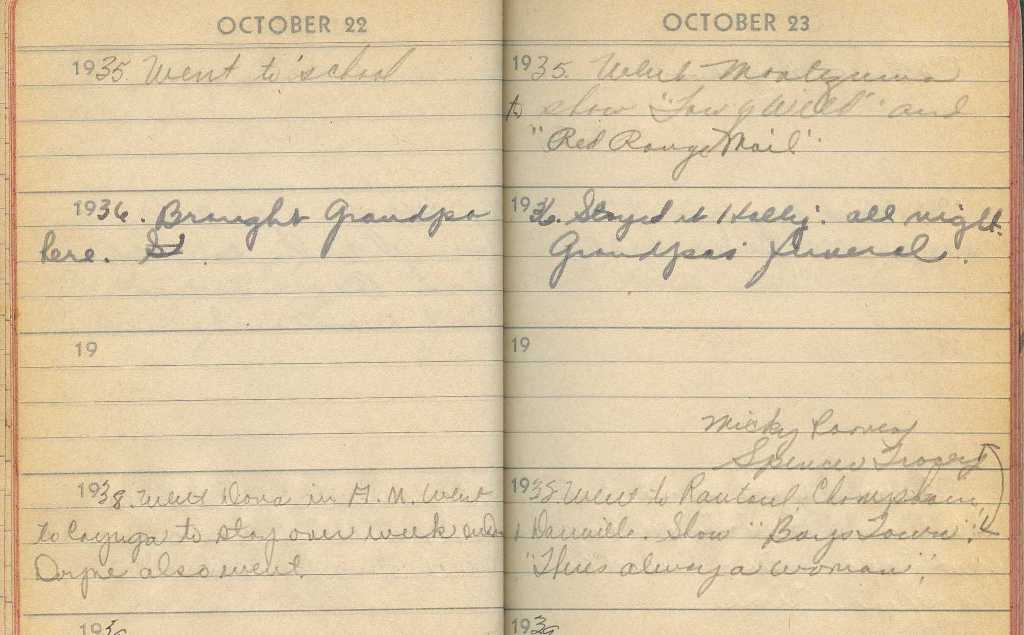 OCTOBER 22
1935. Went to school
1936. Brought Grandpa
here. St
19
1938. Went Dona in A.M. Went
to Cayuga to stay over week end
also went.
193
OCTOBER 23
1935. Went Montezuma
to show "Low & Wild" and
"Red Range Mail"
1936. Stayed at Holly. all night.
Grandpas funeral.
19
Micky Rooney
Spencer Tracey
1938 Went to Rantoul, Champhain,
+ Danville. Show "Boys Town":
"Theres always a woman".
193